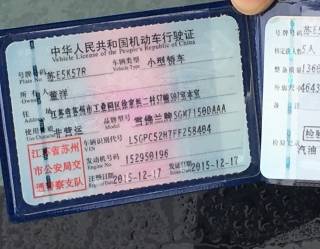 中华人民共和国机动车行驶证
Vehicle License of the People's Republic of China
号牌号码 苏E5K57R 车辆类型 小型轿车
Plate No. Vehicle Type
所有人
Owner
住址 江苏省苏州市工业园区
Address
使用性质 非营运 品牌型号 雪佛兰牌SGM7150DAAA
江苏省苏州市公安局交通警察支队
车辆识别代号 LSGPC52H7FF258404
VIN
发动机号码 152950196
Engine No.
注册日期 2015-12-17 发证日期 2015-12-17
Register Date Issue Date
号牌号码 苏E5
核定载人数 5人
整备质量 1360
4643
检验
汽油